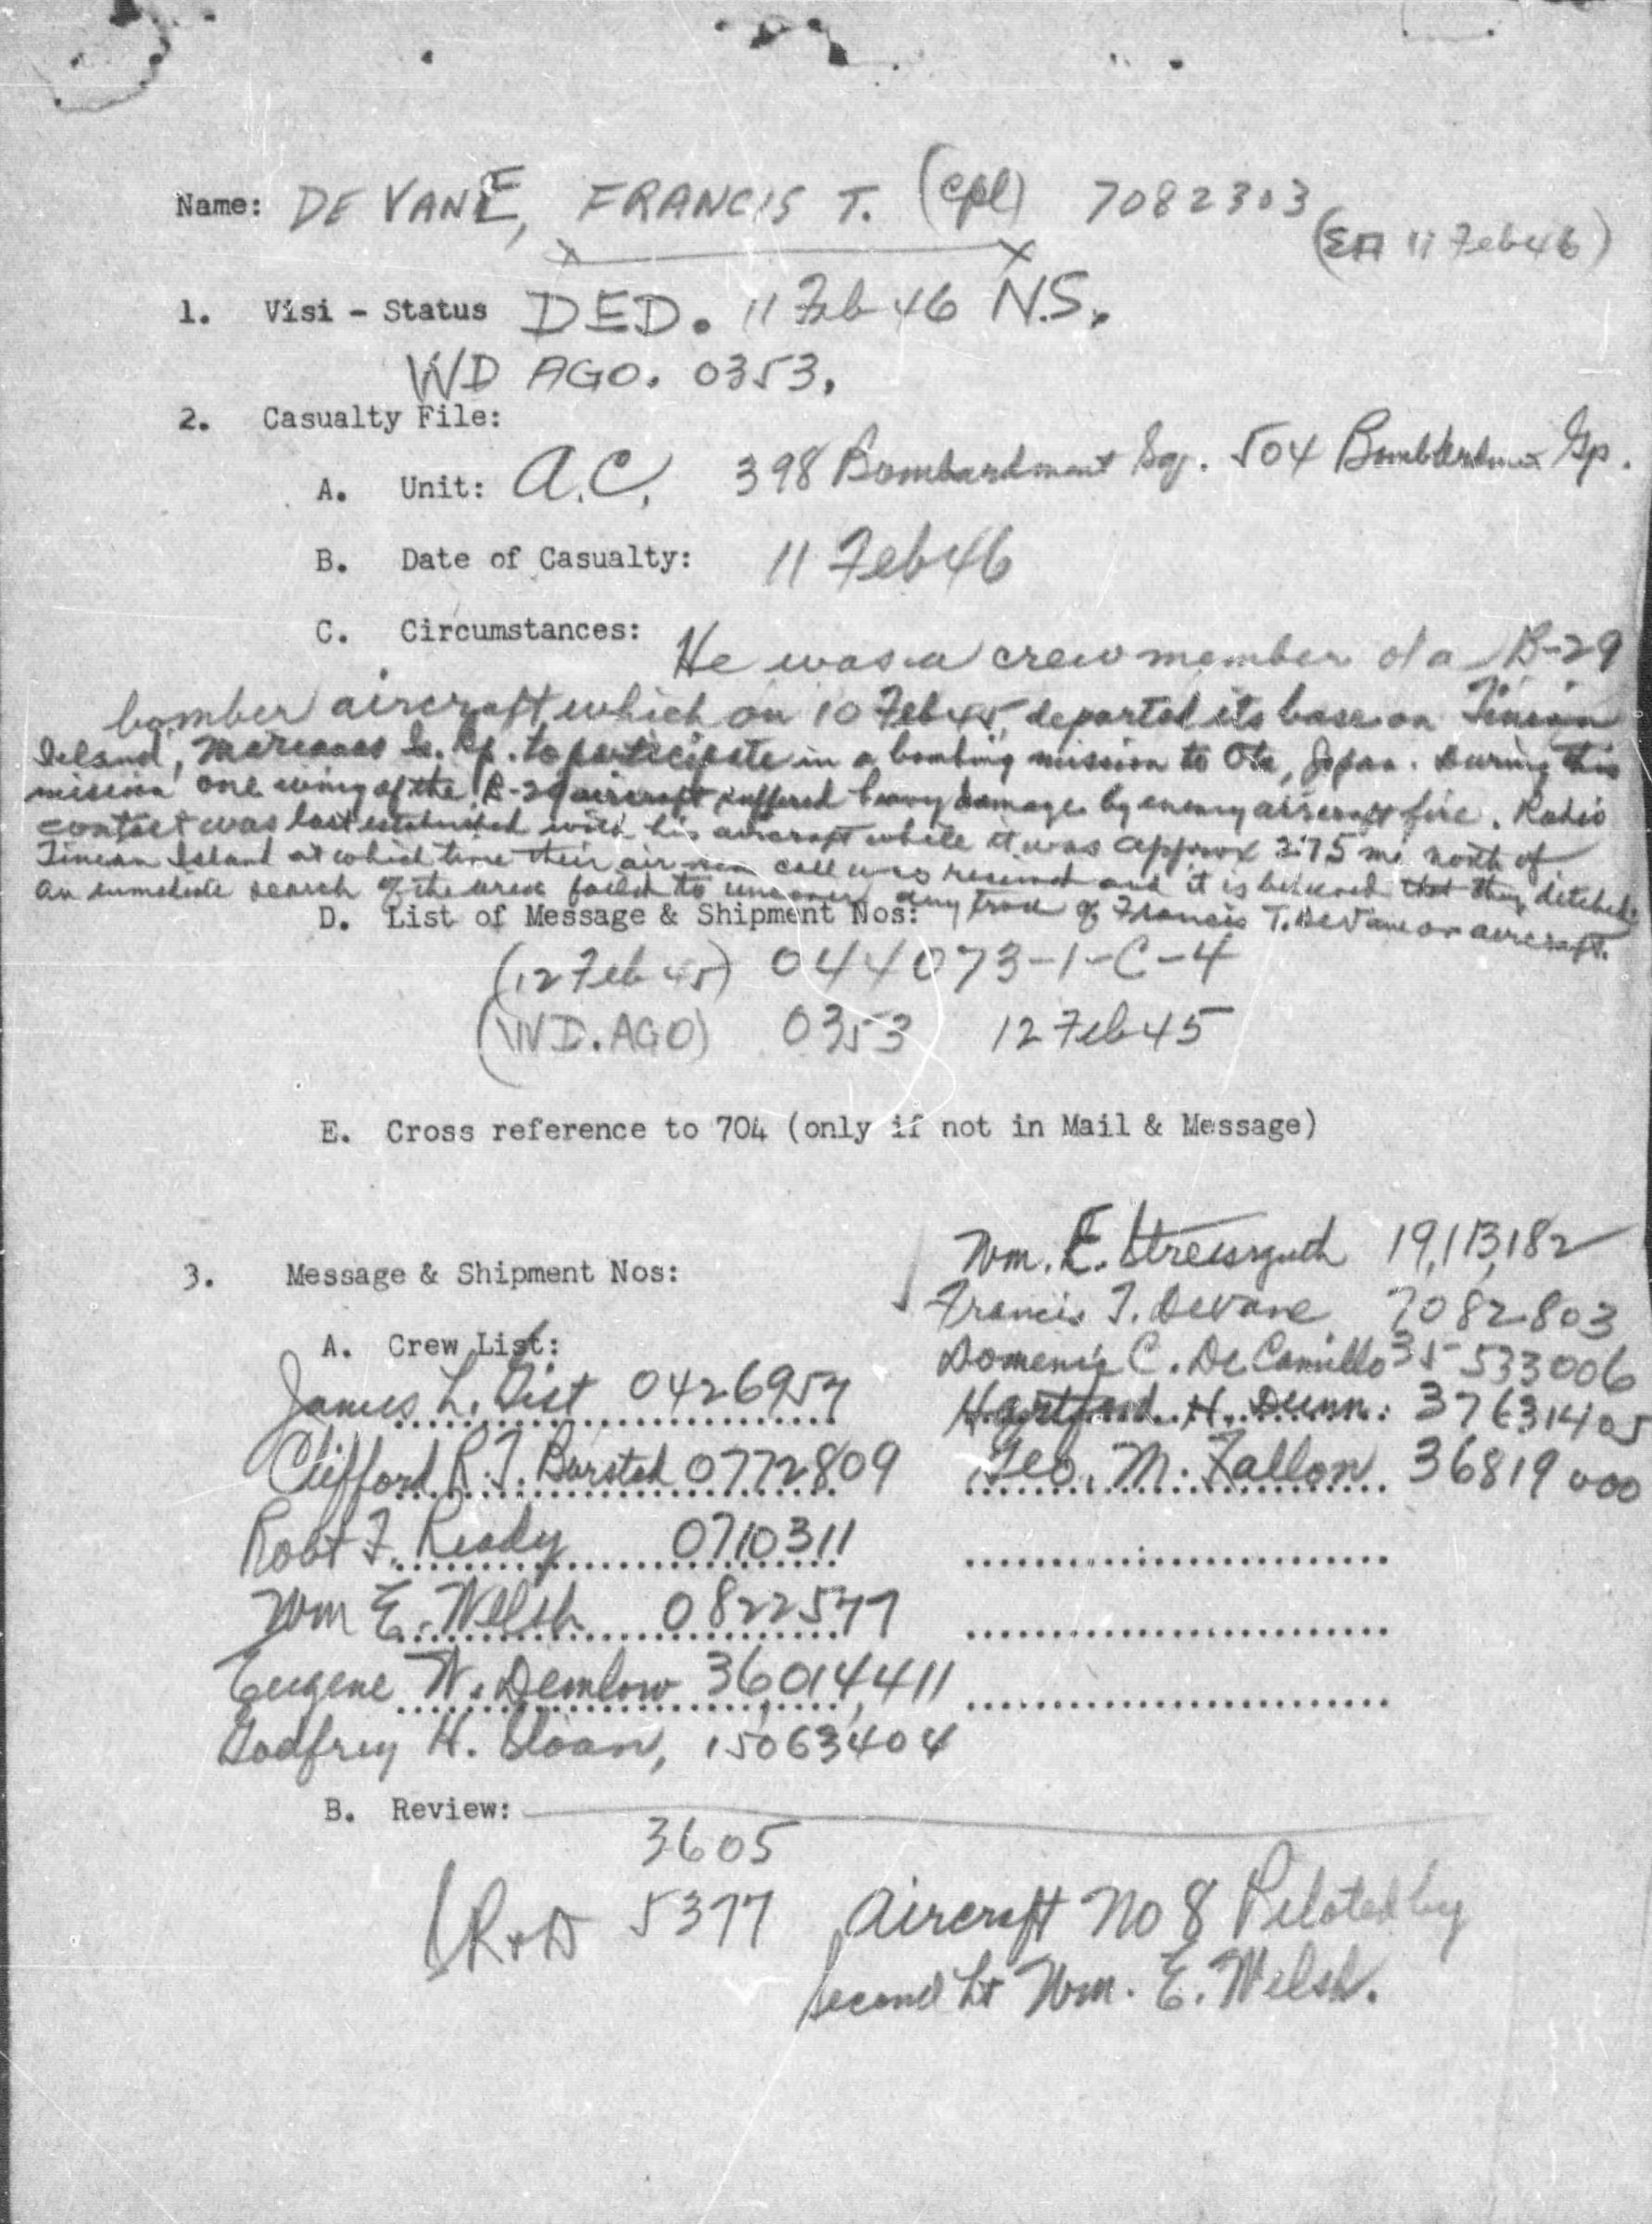 Name: DE VANE, FRANCIS T. (Cpl) 7082303
(ED 11 Feb 46)
1. Visi - Status DED. 11 Feb 46 N.S.
WD AGO. 0353.
2. Casualty File:
A. Unit: A.C. 398 Bombardment Sq. 504 Bombardment Gp.
B. Date of Casualty: 11 Feb 46
C. Circumstances: He was a crew member of a B-29
bomber aircraft, which on 10 Feb 45, departed its base on Tinian
Island, Marianas Is. Gp. to participate in a bombing mission to Ota, Japan. During this
mission one wing of the B-29 aircraft suffered heavy damage by enemy aircraft fire. Radio
contact was last established with his aircraft while it was approx 275 mi north of
Tinean Island at which time their call was received and it is believed that they ditched.
An immediate search of the area failed to uncover any trace of Francis T. DeVane or aircraft.
D. List of Message & Shipment Nos:
(12 Feb 45) 044073-1-C-4
(WD. AGO) 0353 12 Feb 45
E. Cross reference to 704 (only if not in Mail & Message)
3. Message & Shipment Nos:
Wm. E. Streissguth 19,113,182
Francis T. DeVane 7082803
Domenic C. DeCamillo 35 533006
Hartford H. Dunn 37631405
Geo. M. Fallon 36819000
A. Crew List:
James L. 0426954
Clifford R.T. 0772809
Robt F. Ready 0710311
Wm E. Welsh 0822577
Eugene W. Demlow 36014,411
Godfrey H. Sloan, 15063404
B. Review:
3605
R+D 5377 Aircraft No 8 Piloted by
Second Lt Wm. E. Welsh.